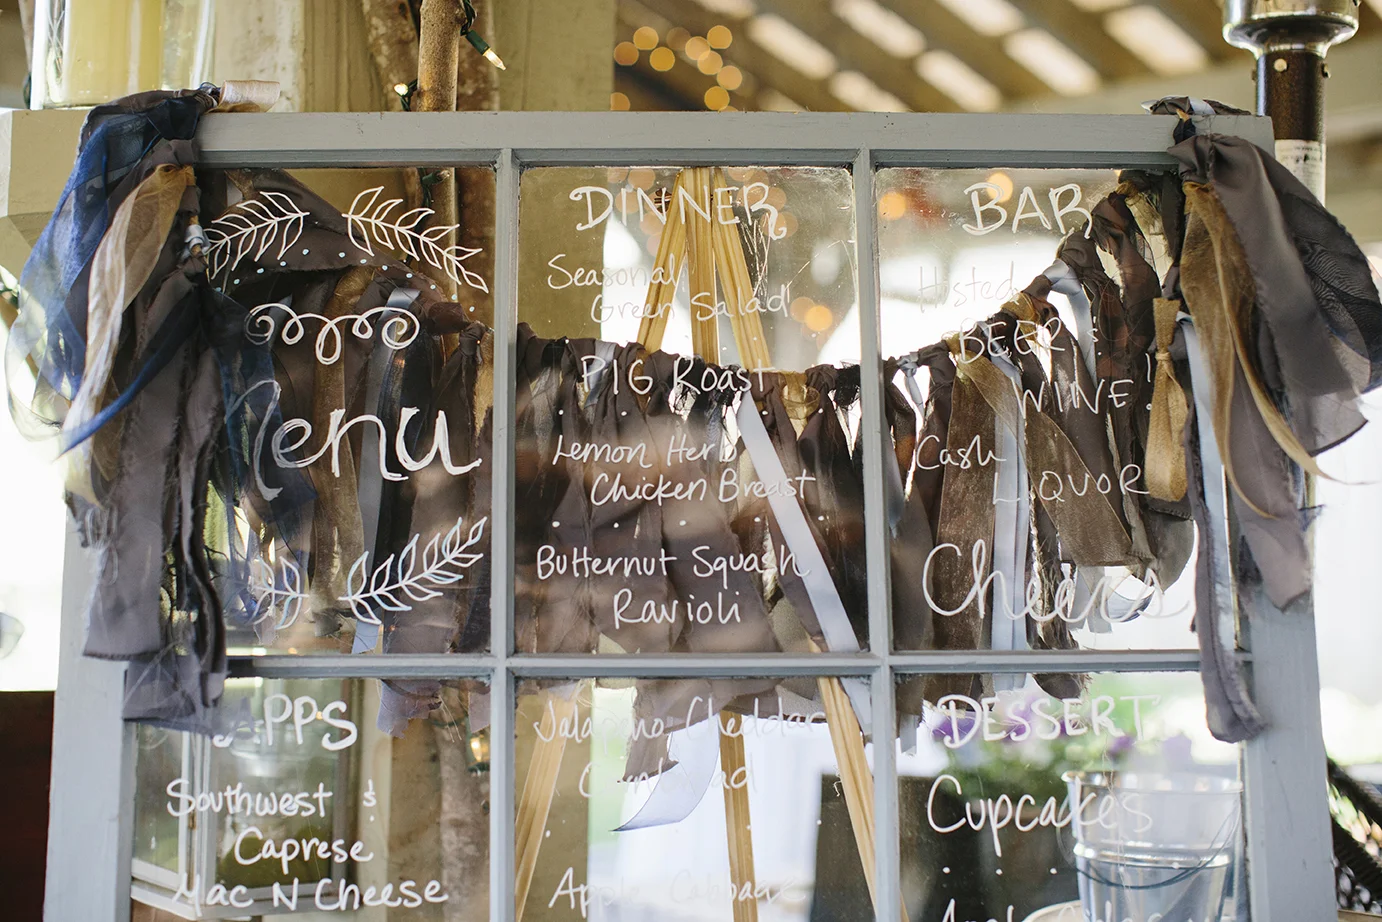 Menu
DINNER
Seasonal
Green Salad
PIG Roast
Lemon Herb
Chicken Breast
Butternut Squash
Ravioli
Jalapeno Cheddar
Apple Cabbage
BAR
Hosted
BEER &
WINE!
Cash
LIQUOR
Cheers
APPS
Southwest &
Caprese
Mac N Cheese
DESSERT
Cupcakes